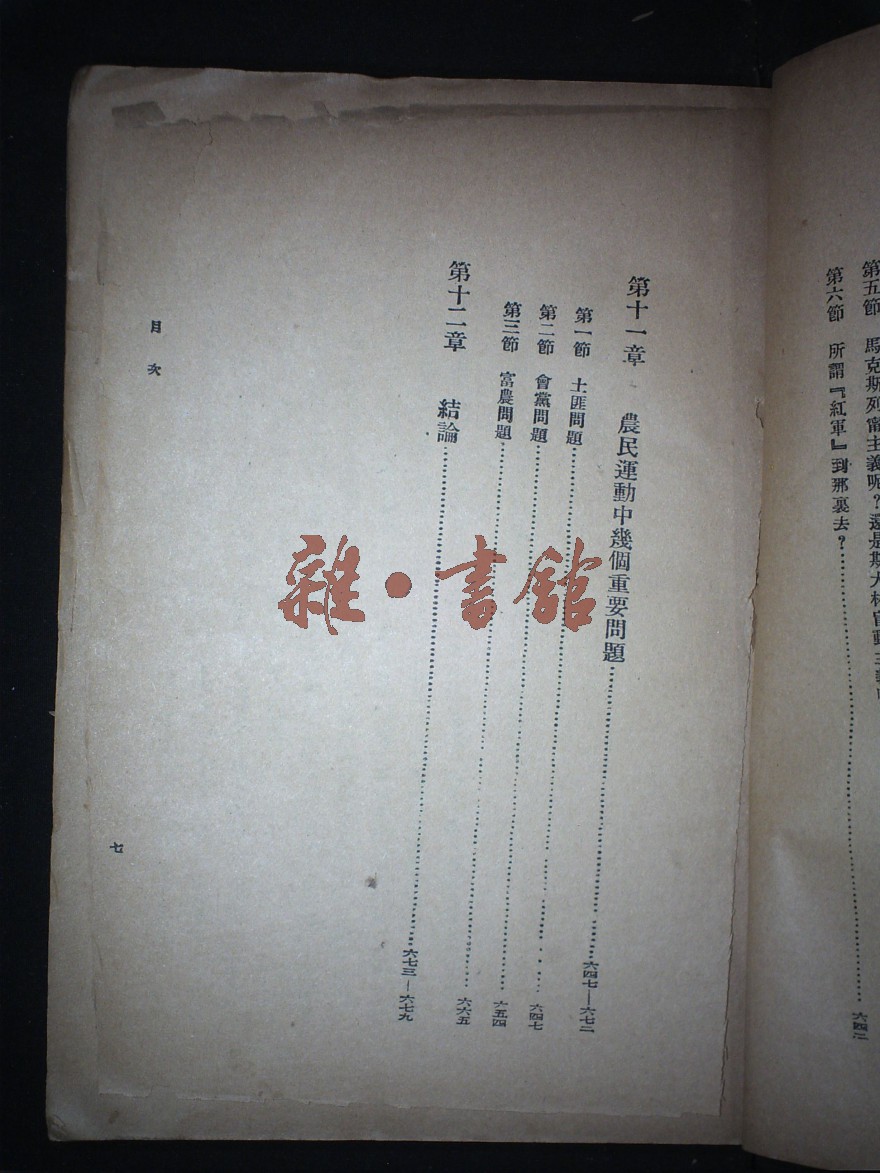 第五節 馬克斯列甯主義呢？還是斯大林盲動主義
第六節 所謂『紅軍』到那裏去？……六四二
第十一章 農民運動中幾個重要問題……六四七—六七二
第一節 土匪問題……六四七
第二節 會黨問題……六五四
第三節 富農問題……六六五
第十二章 結論……六七三—六七九
目次
七
雜·書館